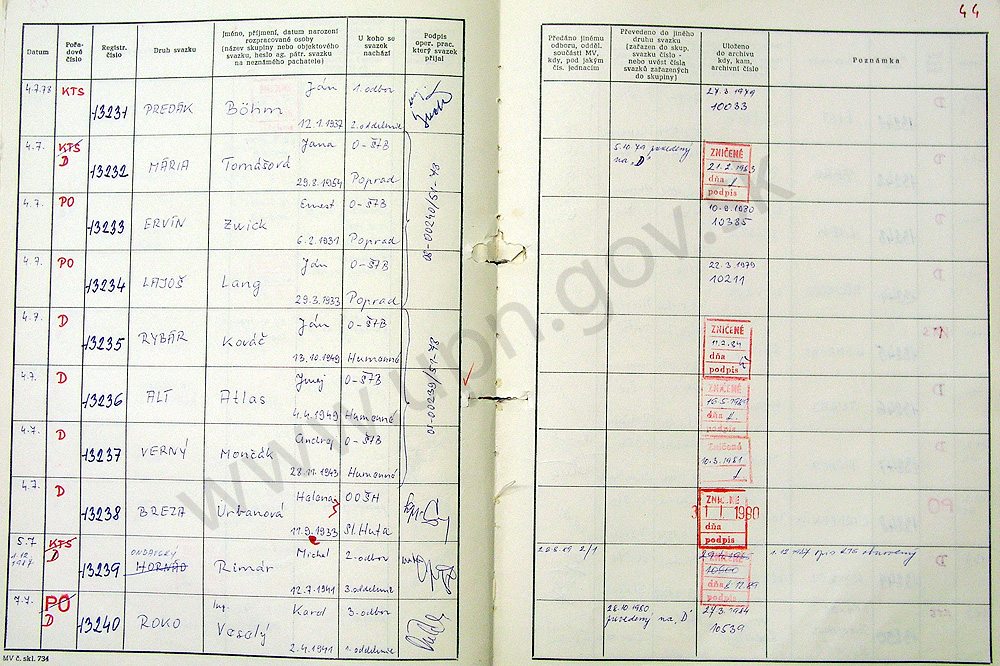 44
Datum
Pořadové číslo
Registr. číslo
Druh svazku
Jméno, příjmení, datum narození
rozpracované osoby
(název skupiny nebo objektového
svazku, heslo ag. pátr. svazku
na neznámého pachatele)
U koho se
svazek
nachází
Podpis
oper. prac.
který svazek
přijal
Předáno jinému
odboru, odděl.
součásti MV,
kdy, pod jakým
čís. jednacím
Převedeno do jiného
druhu svazku
(zařazen do skup.
svazku číslo -
nebo uvést čísla
svazků zařazených
do skupiny)
Uloženo
do archivu
kdy, kam,
archivní číslo
Poznámka
4.7.78 KTS 13231 PREDÁK Ján Böhm 12.1.1937 1. odbor 2. oddelenie 27.3.1979 10033
4.7. KTS D 13232 MÁRIA Jana Tomášová 29.8.1954 O-ŠTB Poprad 5.10.79 prevedený na "D" ZNIČENÉ dňa podpis
4.7. PO 13233 ERVÍN Ernest Zwick 6.2.1931 O-ŠTB Poprad 10385
4.7. PO 13234 LAJOŠ Ján Lang 29.3.1933 O-ŠTB Poprad 22.3.1979 10211
08-00240/51-78
4.7. D 13235 RYBÁR Ján Kováč 13.10.1949 O-ŠTB Humenné ZNIČENÉ 11.2.84 dňa podpis
4.7. D 13236 ALT Atlas 4.4.1949 O-ŠTB Humenné ZNIČENÉ dňa podpis
4.7. D 13237 VERNÝ Andrej Mončák 28.11.1943 O-ŠTB Humenné Zničené 10.3.1981
01-00239/51-78
4.7. D 13238 BREZA Helena Urbanová 11.9.1933 OOŠH St. Huta ZNIČENÉ 31 1 1980 dňa podpis
5.7. 1.12.1987 KTS D 13239 ONDAVSKÝ HORNÁD Michal Rimár 12.7.1941 2. odbor 3. oddelenie dňa podpis
7.7. PO D 13240 ROKO Ing. Karol Veselý 2.4.1941 3. odbor 1. oddelenie 28.10.1980 prevedený na "D" 10539
MV č. skl. 734
www.upn.gov.sk